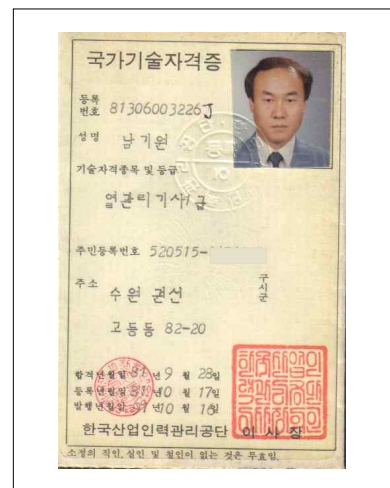 국가기술자격증
등록
번호 81306003226J
성명 남기원
기술자격종목 및 등급
열관리기사1급
주민등록번호 520515-
주소 수원 권선 구시군
고등동 82-20
합격년월일 81년 9월 28일
등록년월일 81년10월 17일
발행년월일 년10월 16일
한국산업인력관리공단 이사장
소정의 직인, 실인 및 철인이 없는 것은 무효임.